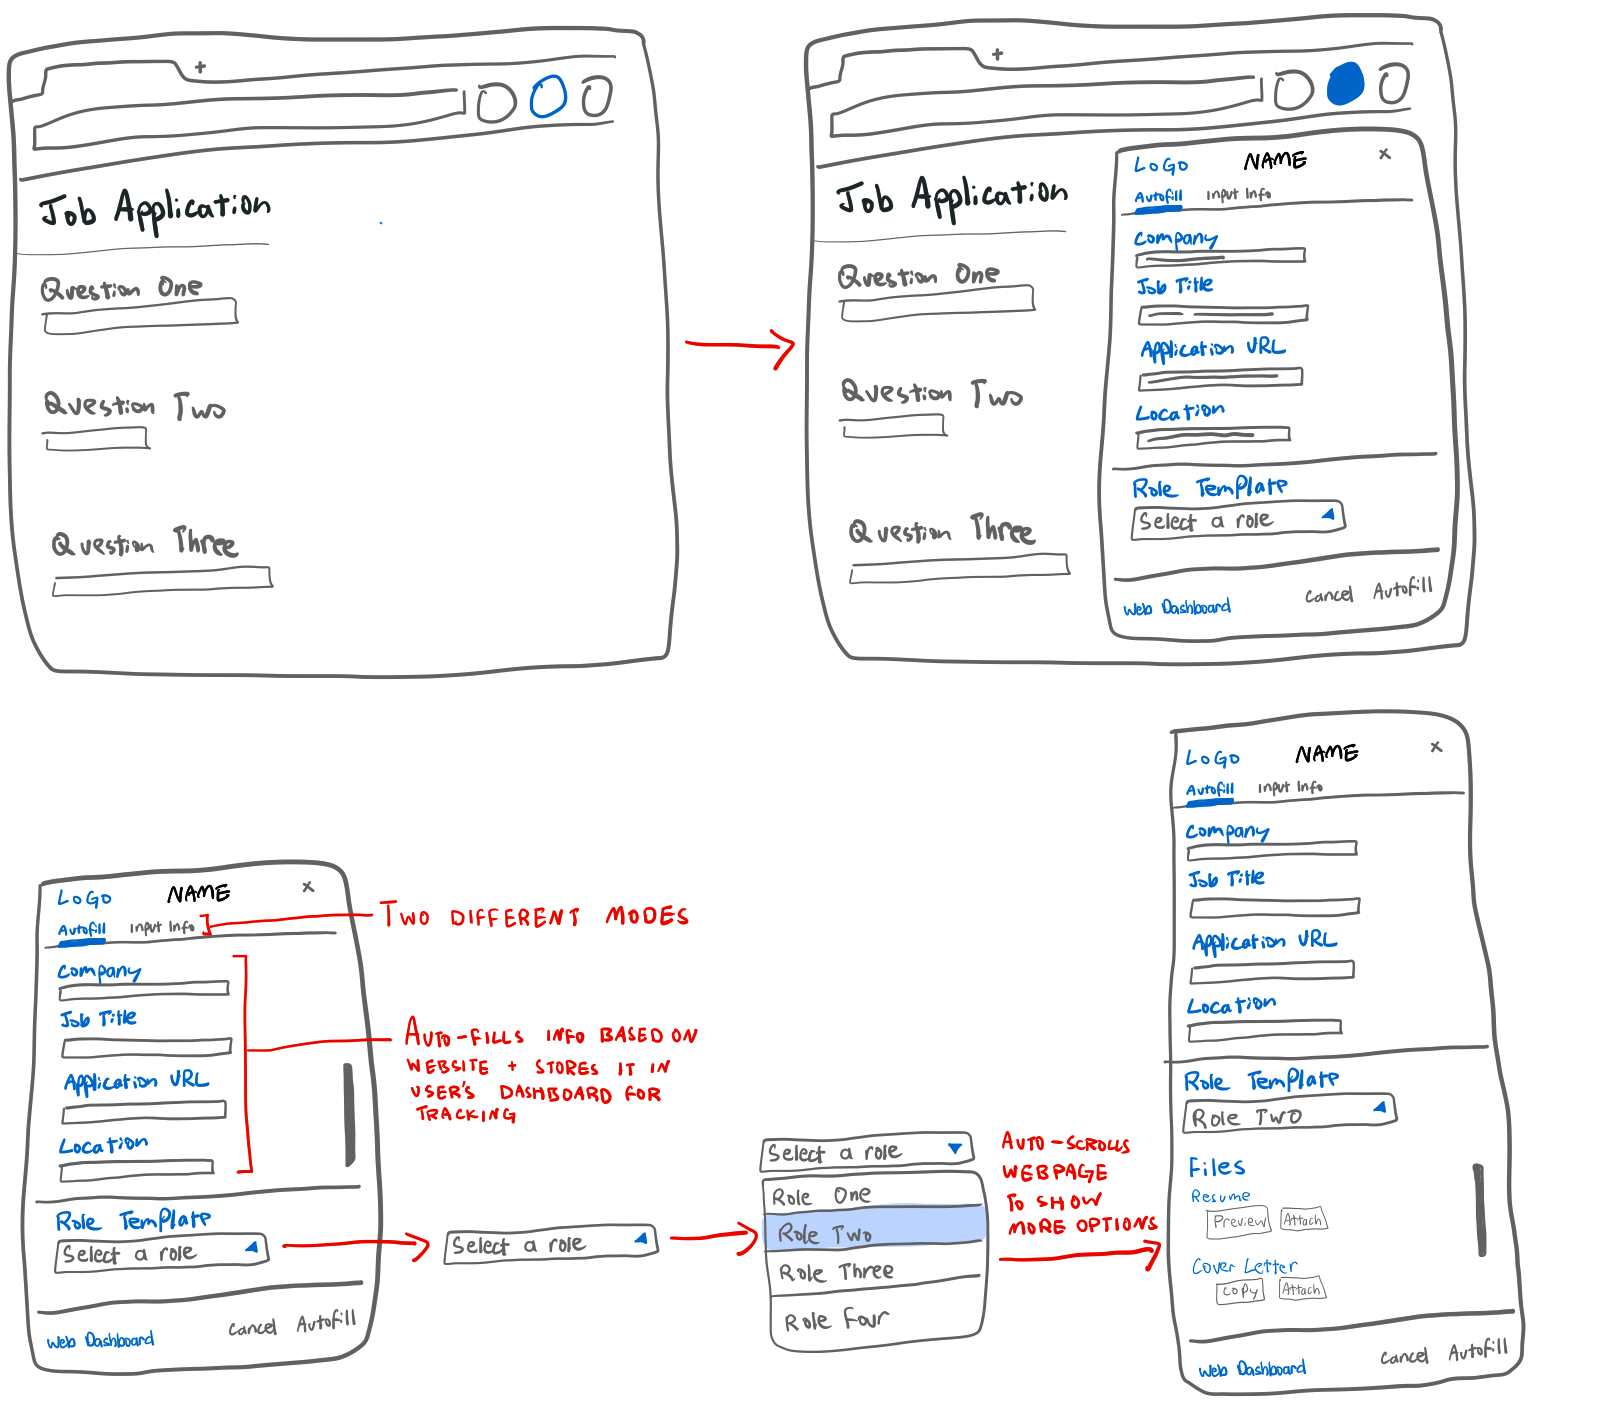 +
Job Application
Question One
Question Two
Question Three
+
Job Application
Question One
Question Two
Question Three
LOGO NAME x
Autofill Input Info
Company
Job Title
Application URL
Location
Role Template
Select a role
Web Dashboard Cancel Autofill
LOGO NAME x
Autofill Input Info
TWO DIFFERENT MODES
Company
Job Title
Application URL
Location
AUTO-FILLS INFO BASED ON
WEBSITE + STORES IT IN
USER'S DASHBOARD FOR
TRACKING
Role Template
Select a role
Web Dashboard Cancel Autofill
Select a role
Select a role
Role One
Role Two
Role Three
Role Four
AUTO-SCROLLS
WEBPAGE
TO SHOW
MORE OPTIONS
LOGO NAME x
Autofill Input Info
Company
Job Title
Application URL
Location
Role Template
Role Two
Files
Resume
Preview Attach
Cover Letter
Copy Attach
Web Dashboard Cancel Autofill